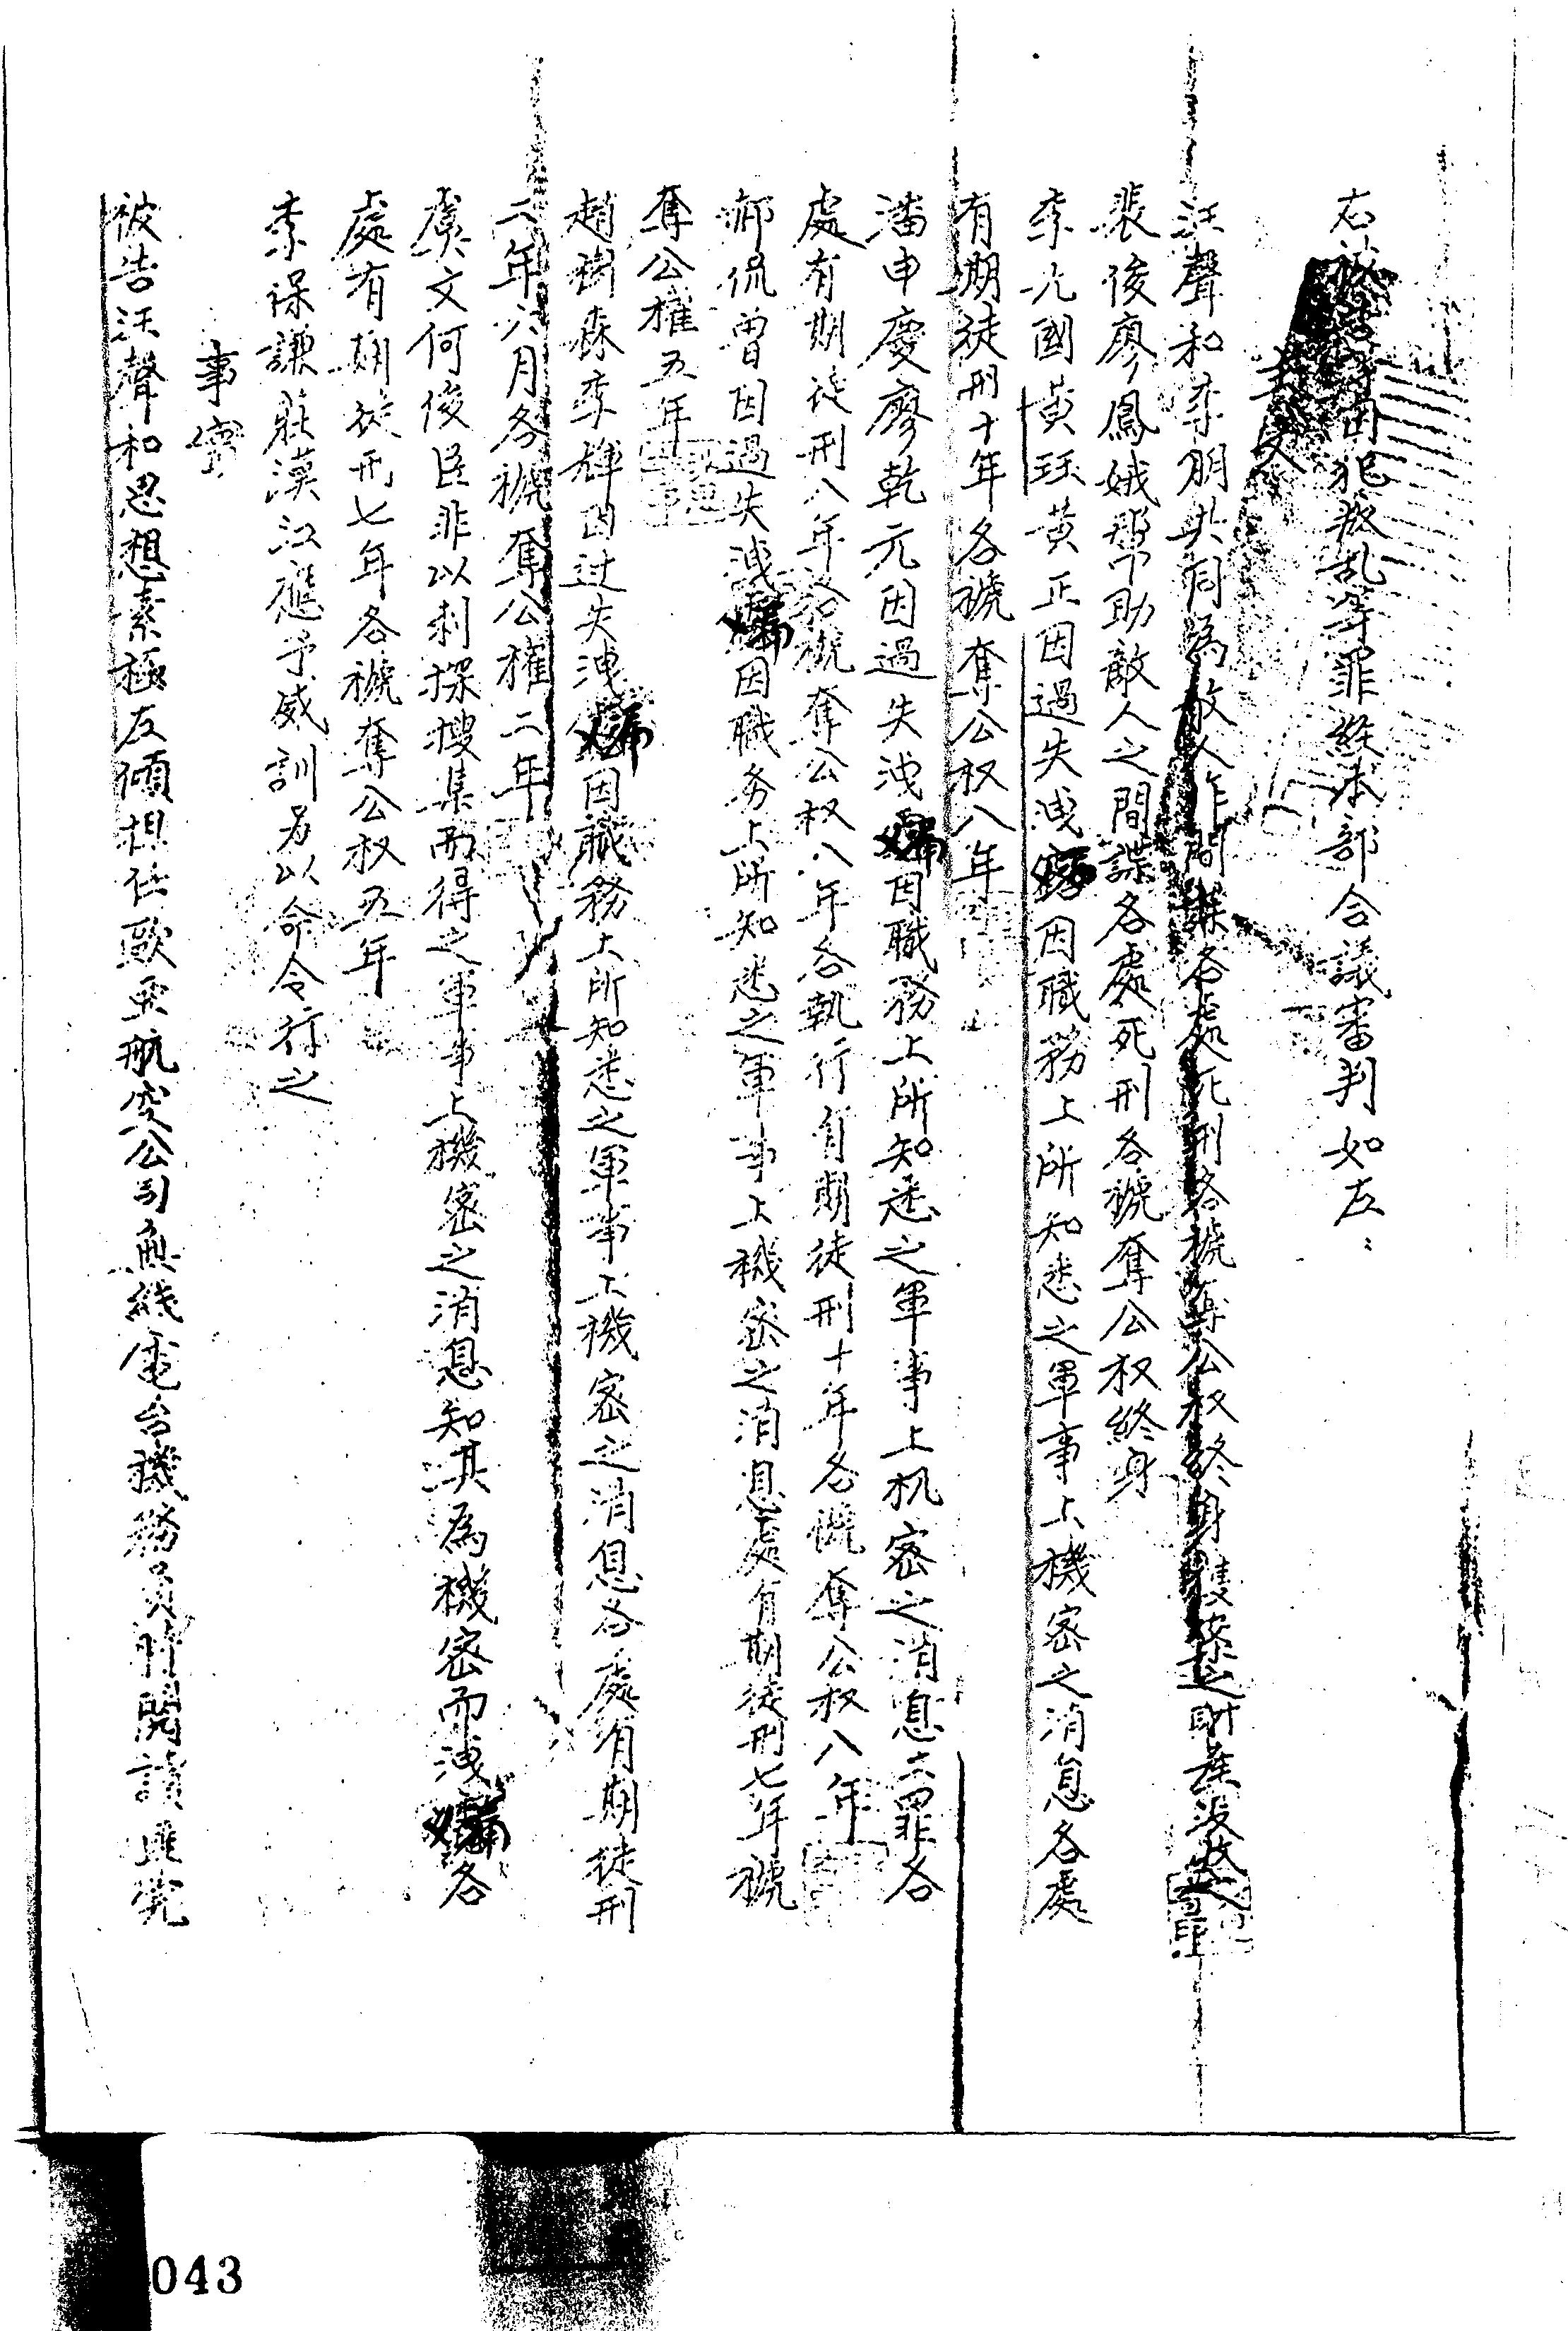 右被告等因犯叛乱等罪経本部合議審判如左：
主文
汪聲和李朋共同為敌人作間諜各處死刑各褫奪公权終身獲案之財產没收之
裴俊廖鳳娥帮助敵人之間諜各處死刑各褫奪公权終身
李九國黄珏黄正因過失洩因職務上所知悉之軍事上機密之消息各處
有期徒刑十年各褫奪公权八年
潘申慶廖乾元因過失洩漏因職務上所知悉之軍事上机密之消息六罪各
處有期徒刑八年各褫奪公权八年各執行有期徒刑十年各褫奪公权八年
郝侃曾因過失洩漏因職务上所知悉之軍事上機密之消息處有期徒刑七年褫
奪公權五年
趙樹森李輝因过失洩漏因職務上所知悉之軍事上機密之消息各處有期徒刑
二年六月各褫奪公權二年
虞文何俊臣非以刺探搜集而得之軍事上機密之消息知其為機密而洩漏各
處有期徒刑七年各褫奪公权五年
李禄謙莊漢江應予感訓另以命令行之
事實
被告汪聲和思想素極左傾担任歐亞航空公司無綫電台機務員時閱讀匪党
043